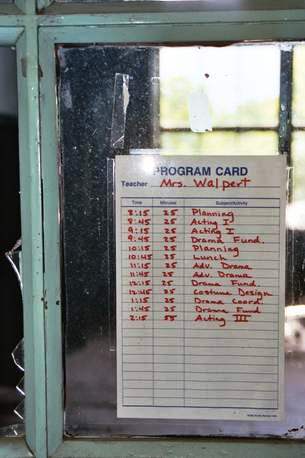 PROGRAM CARD
Teacher Mrs. Walpert
Time Minutes Subject/Activity
8:15 25 Planning
8:45 25 Acting I
9:15 25 Acting I
9:45 25 Drama Fund.
10:15 25 Planning
10:45 25 Lunch
11:15 25 Adv. Drama
11:45 25 Adv. Drama
12:15 25 Drama Fund
12:45 25 Costume Design
1:15 25 Drama Coord.
1:45 25 Drama Fund
2:15 55 Acting III